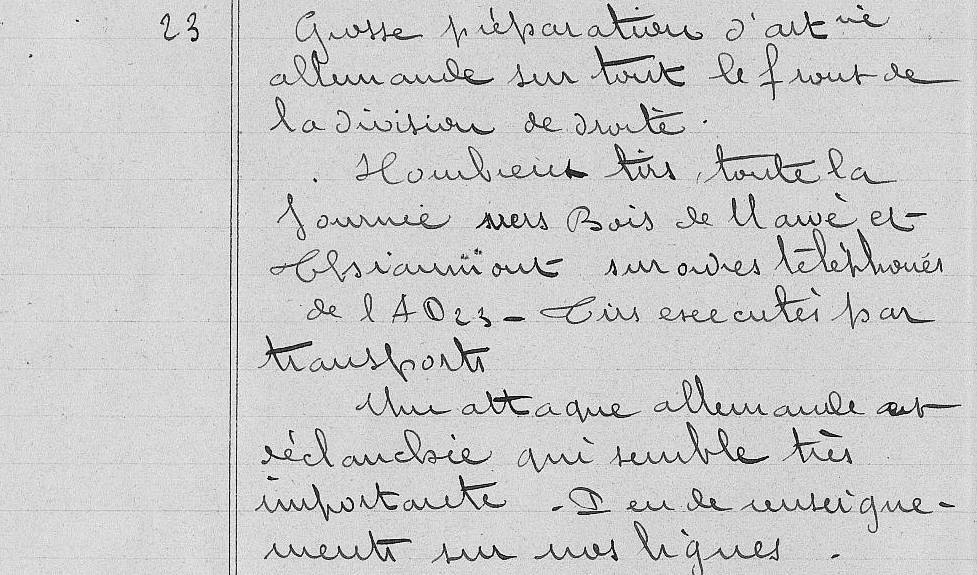 23 Grosse préparation d'art rie
allemande sur tout le front de
la division de droite.
Nombreux tirs, toute la
Journée vers Bois de Nawé et
sur ordres téléphonés
de l'AD23 - Tirs executés par
transports
Une attaque allemande est
déclanchée qui semble très
importante. - Peu de renseigne-
ments sur nos lignes.